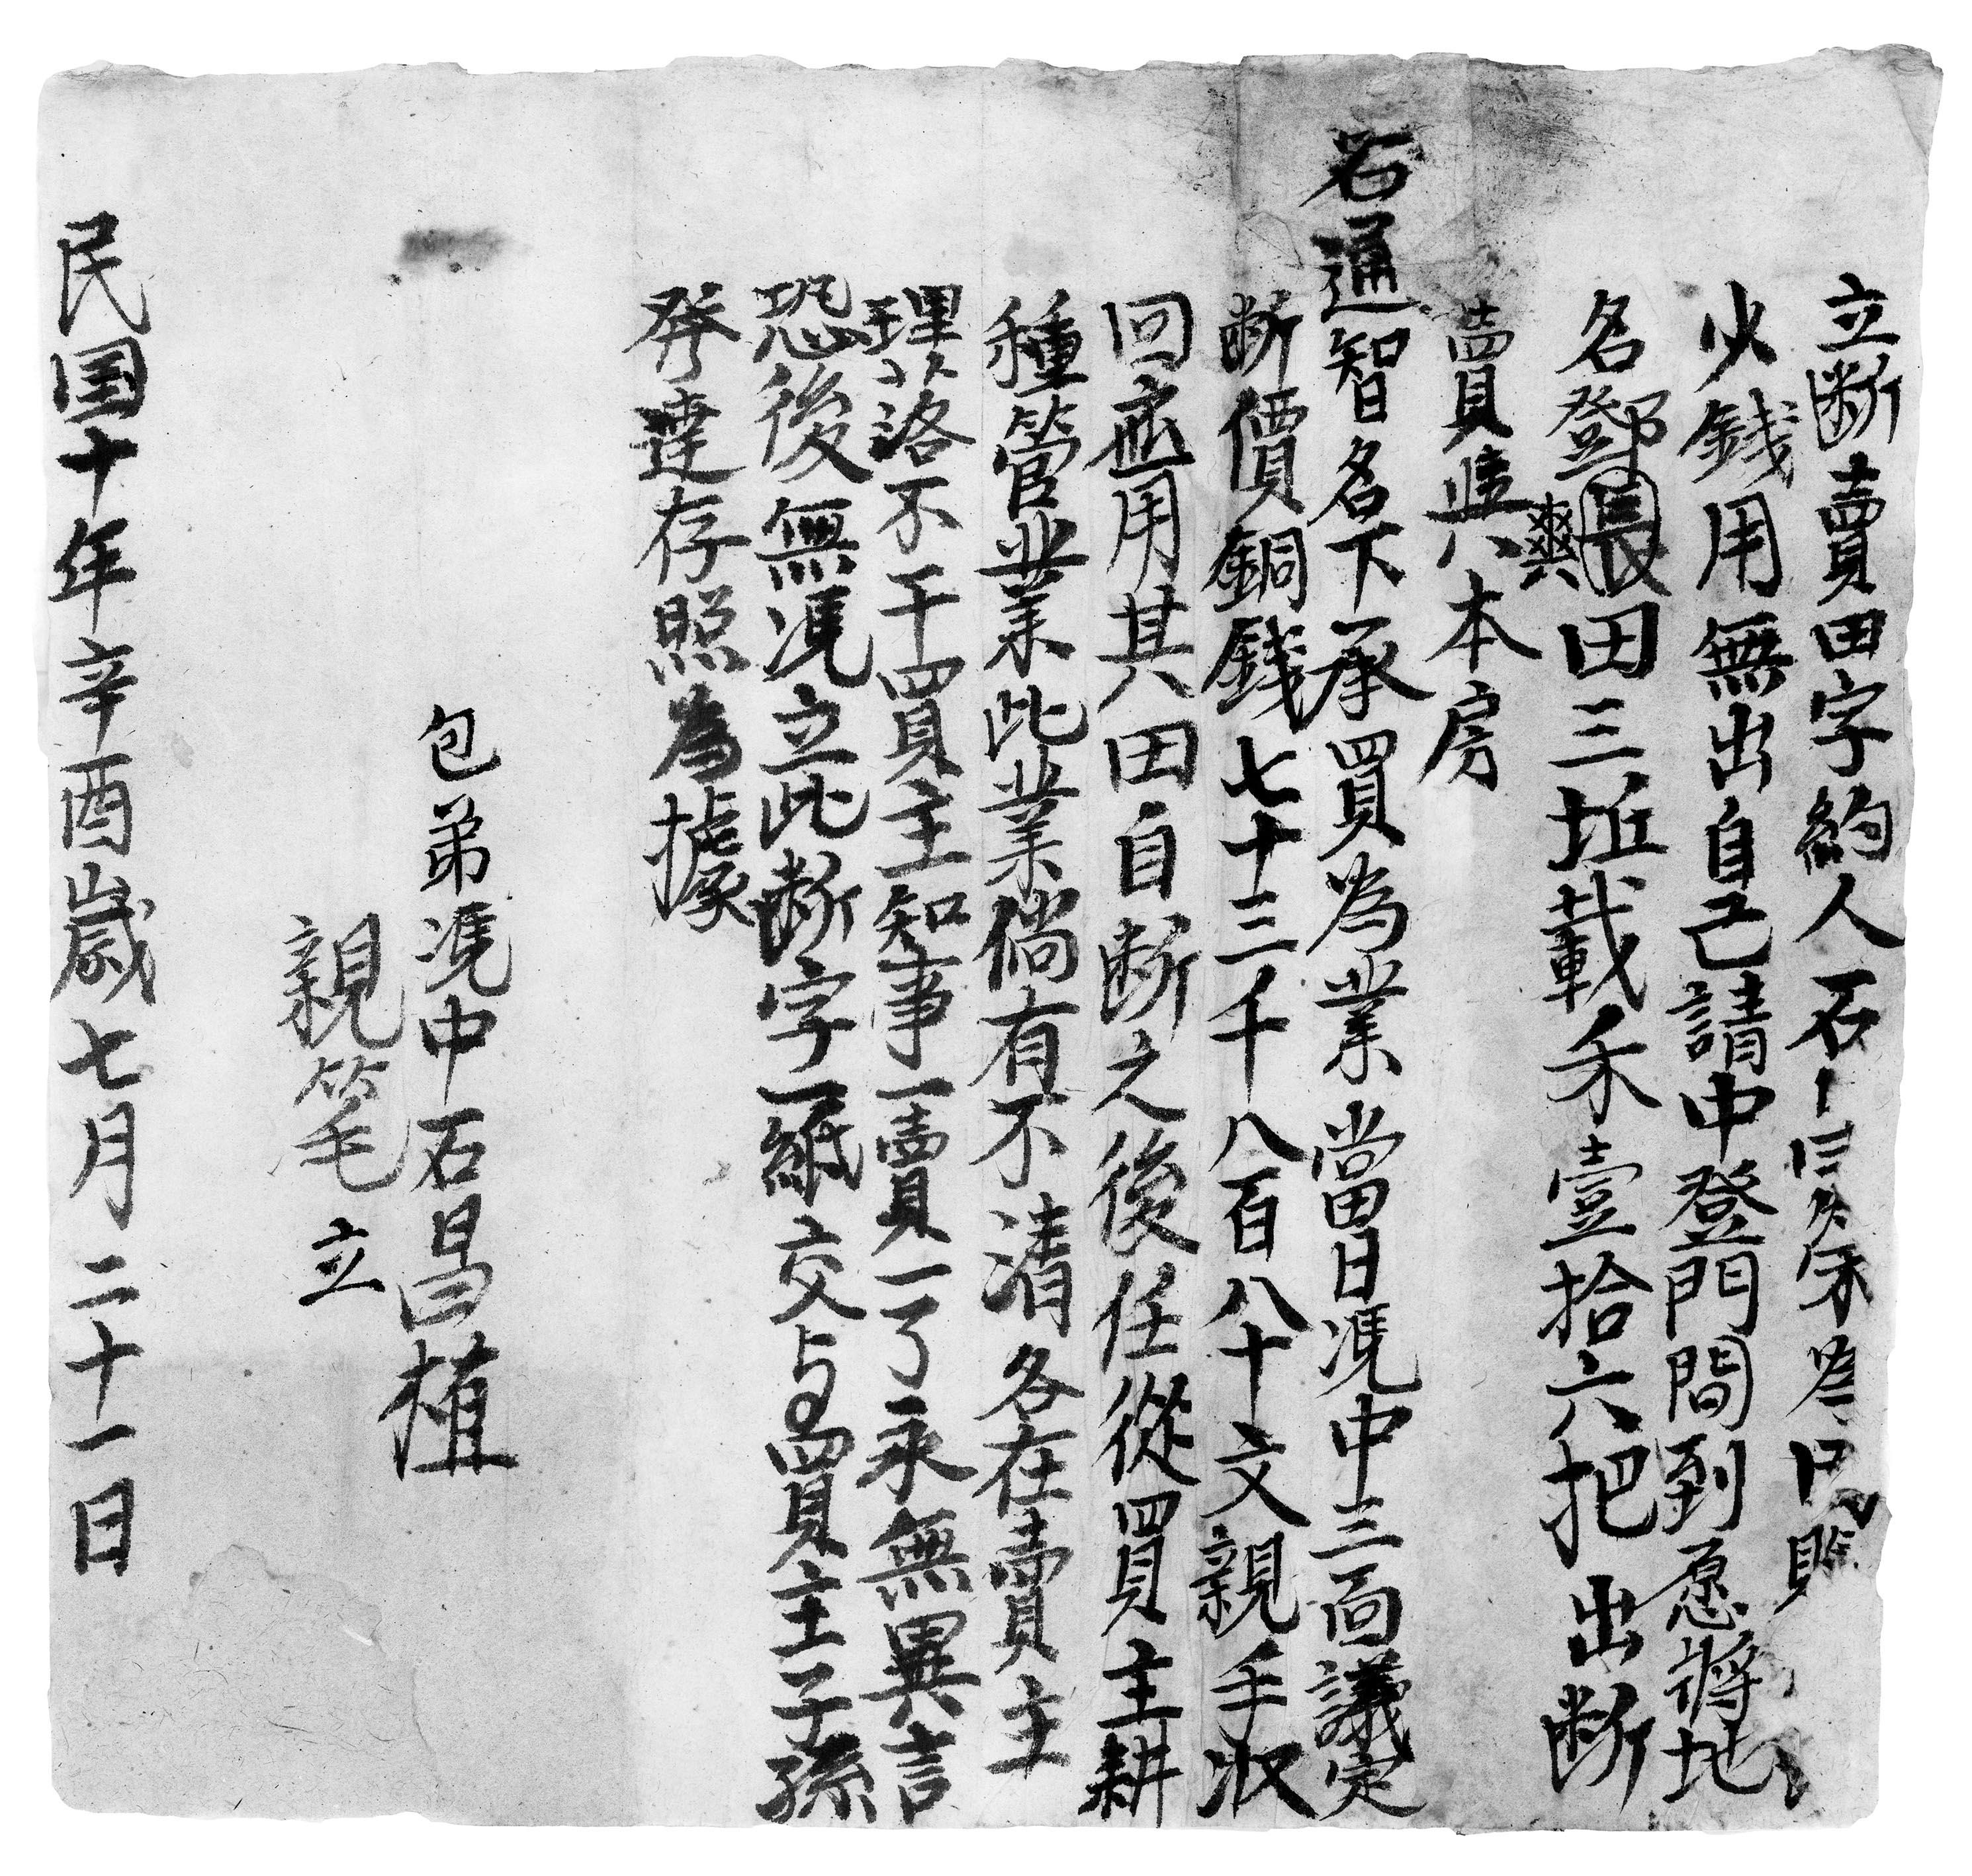 立断賣田字約人石
少錢用無出自己請中登門問到愿將地
名鄧長爽田三坵載禾壹拾六把出断
賣與本房
石通智名下承買為業當日凴中三面議定
断價銅錢七十三千八百八十文親手收
回應用其田自断之後任從買主耕
種管業此業倘有不清各在賣主
理落不干買主知事一賣一了永無異言
恐後無凴立此断字一紙交与買主子孫
發達存照為據
包弟凴中石昌植
親筆立
民国十年辛酉歲七月二十一日